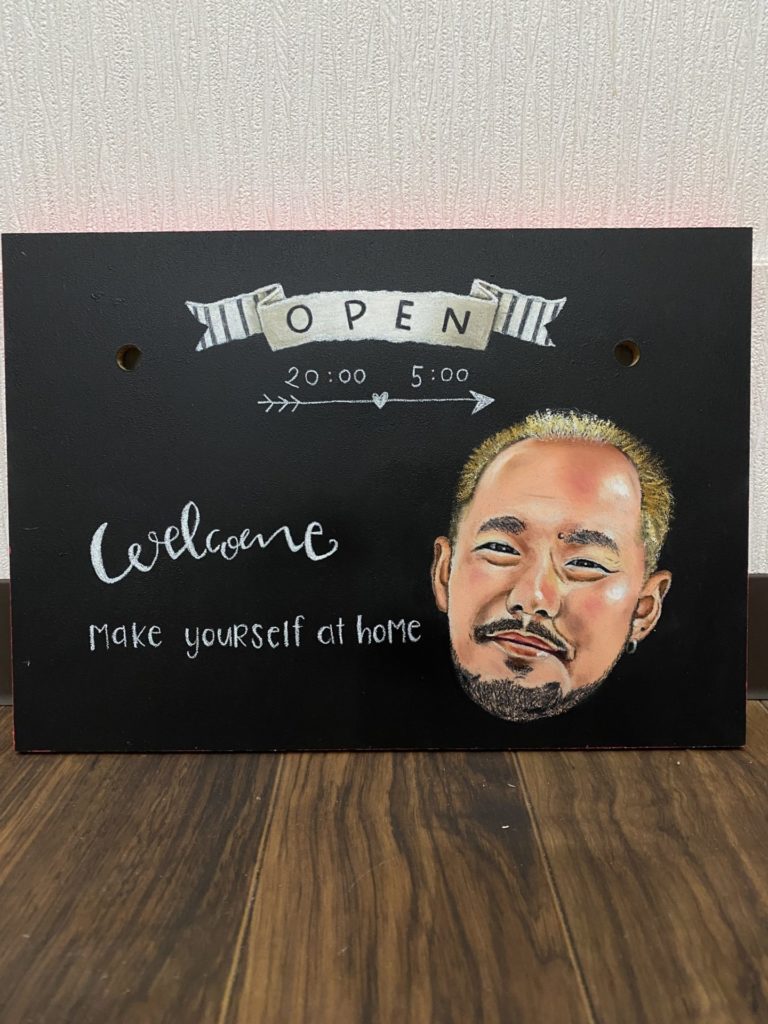 OPEN
20:00 5:00
welcome
make yourself at home